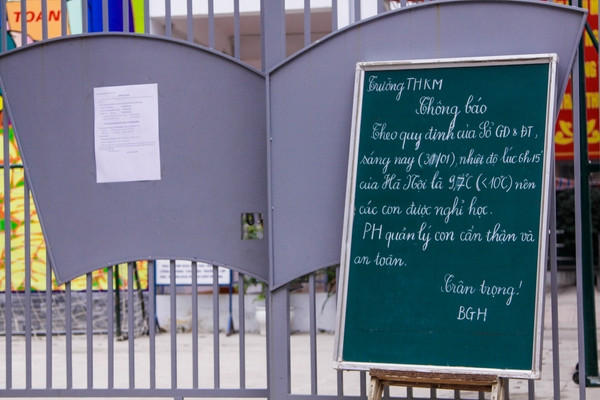 TOAN
Trường THKM
Thông báo
Theo quy định của Sở GD & ĐT,
sáng nay (31/01), nhiệt độ lúc 6h15'
của Hà Nội là 9,7°C (<10°C) nên
các con được nghỉ học.
PH quản lý con cẩn thận và
an toàn.
Trân trọng!
BGH